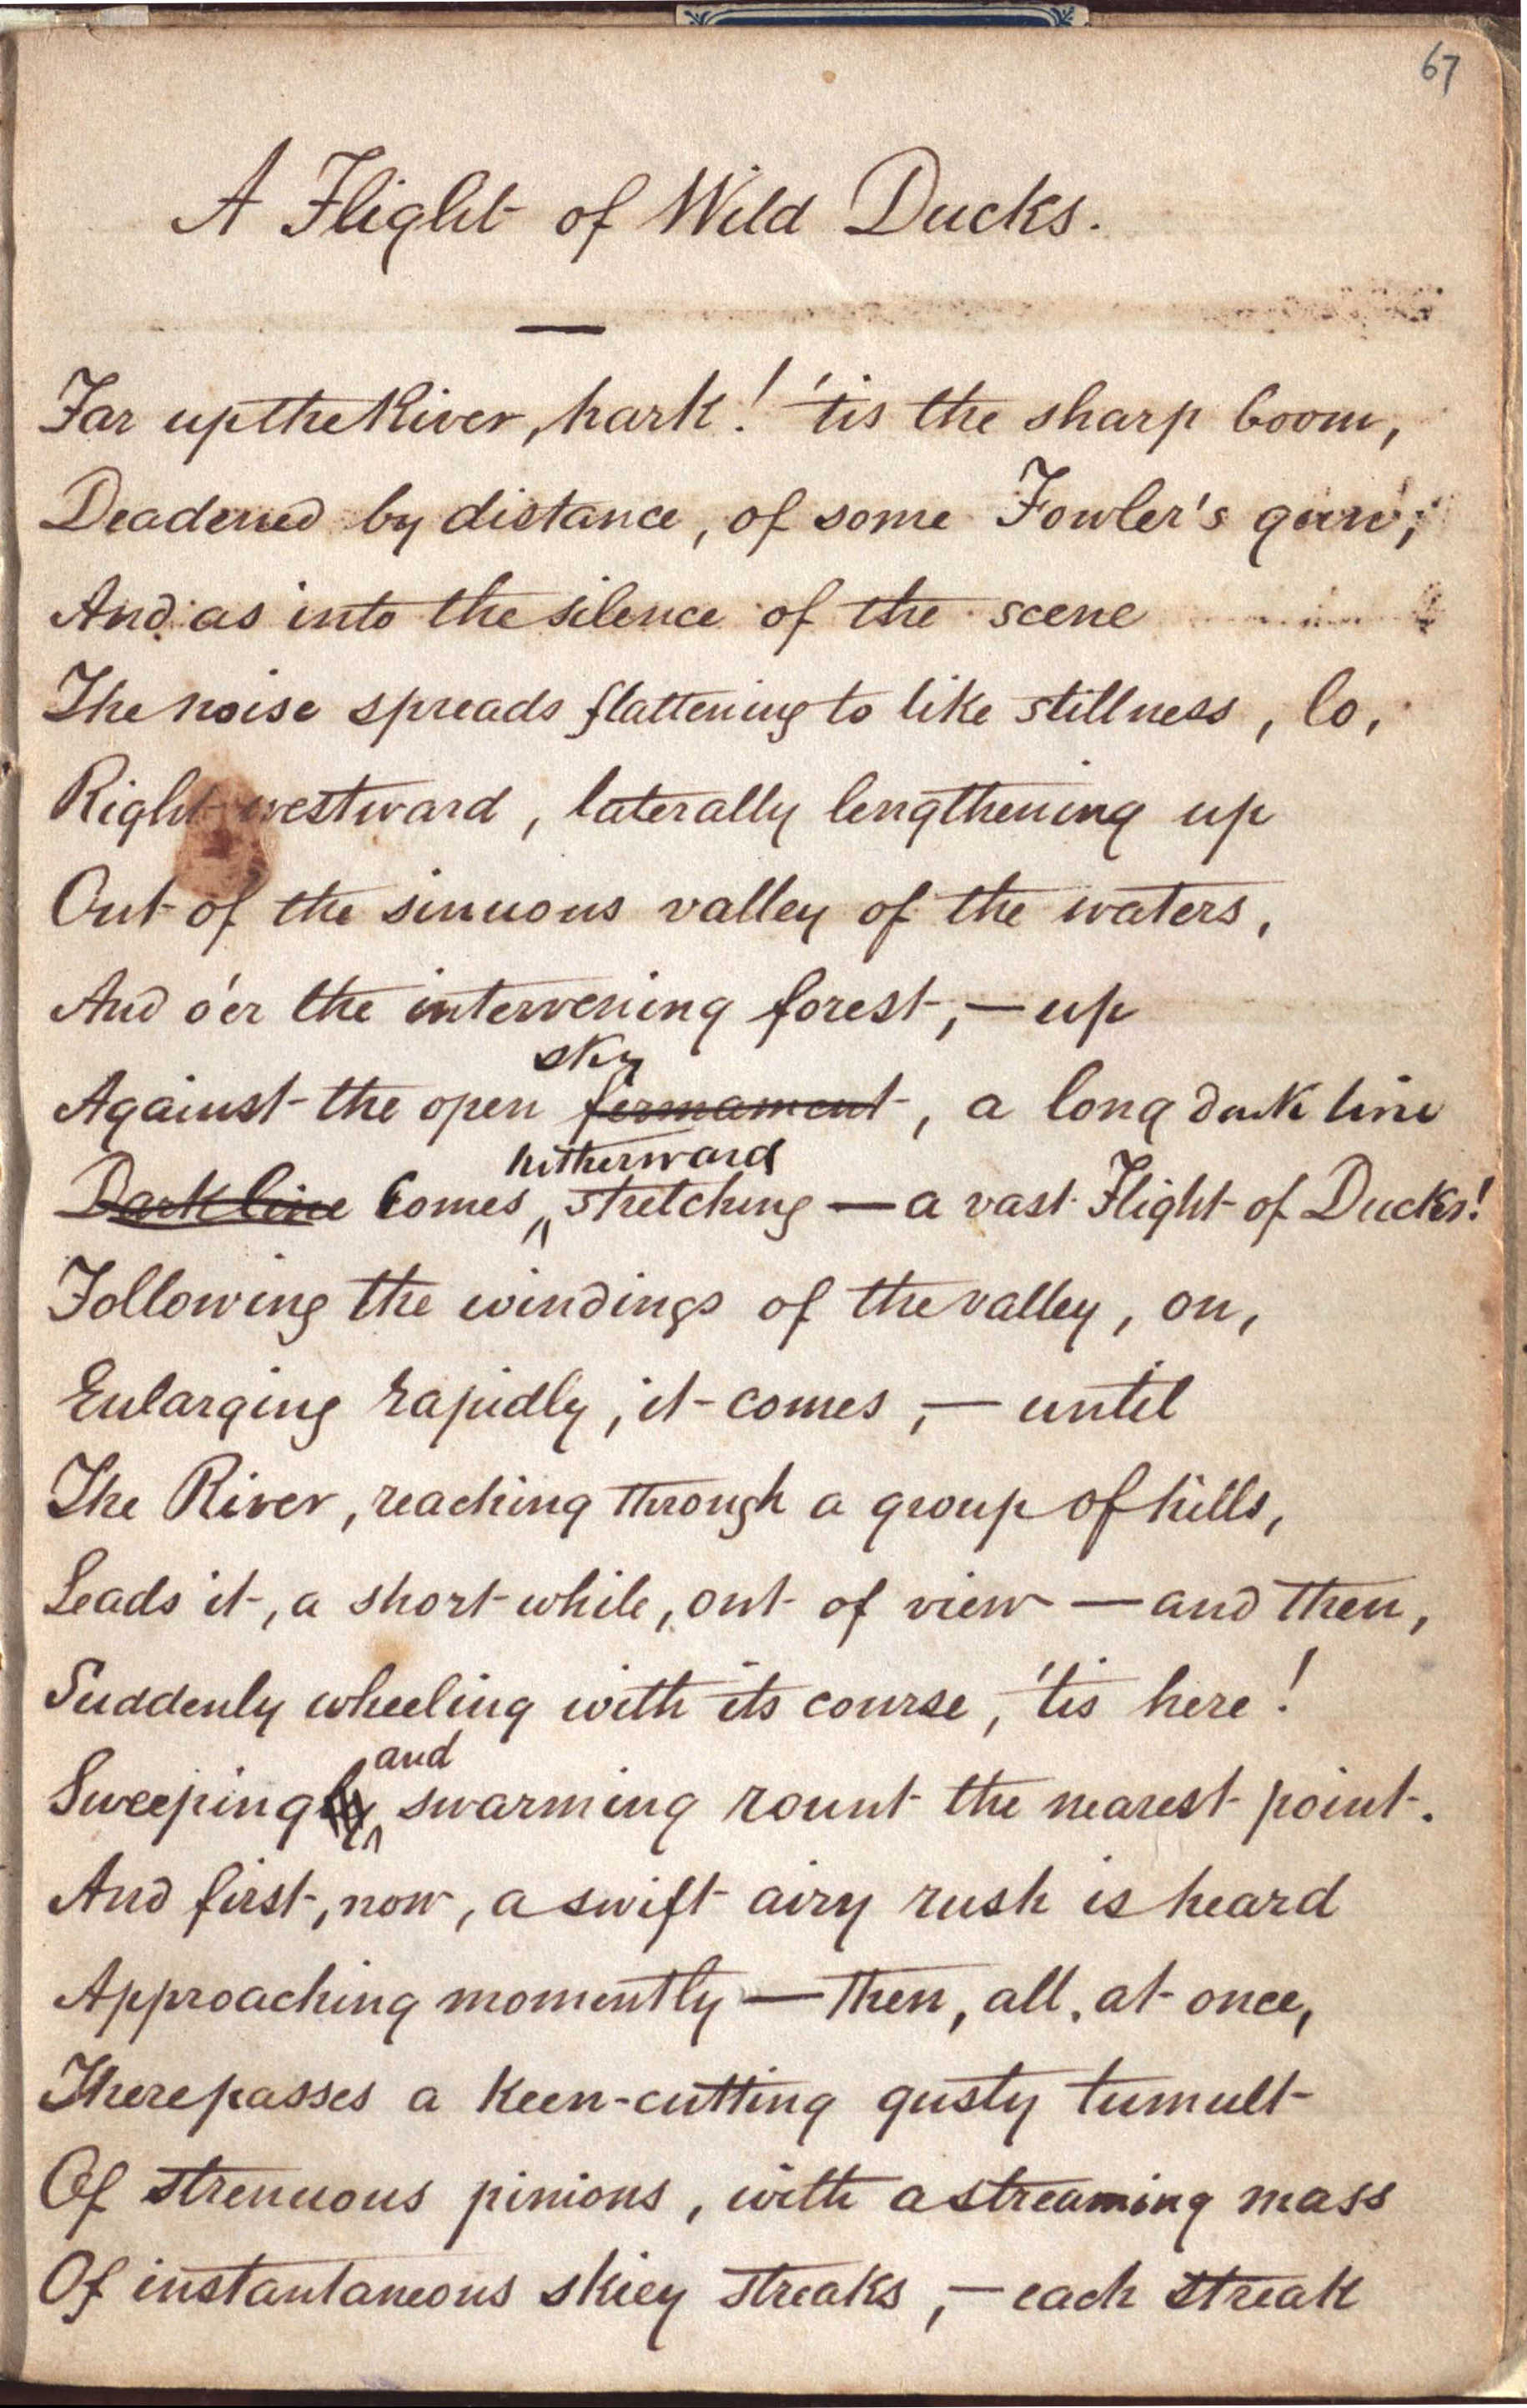 67
A Flight of Wild Ducks.
Far up the River, hark! 'tis the sharp boom,
Deadened by distance, of some Fowler's gun;
And as into the silence of the scene
The noise spreads flattening to like stillness, lo,
Right westward, laterally lengthening up
Out of the sinuous valley of the waters,
And o'er the intervening forest,—up
sky
Against the open firmament, a long dark line
hitherward
Dark line Comes, stretching — a vast Flight of Ducks!
Following the windings of the valley, on,
Enlarging rapidly, it comes,— until
The River, reaching through a group of hills,
Leads it, a short while, out of view — and then,
Suddenly wheeling with its course, 'tis here!
and
Sweepingly swarming rount the nearest point.
And first, now, a swift airy rush is heard
Approaching momently — then, all, at once,
There passes a keen-cutting gusty tumult
Of strenuous pinions, with a streaming mass
Of instantaneous skiey streaks,— each streak